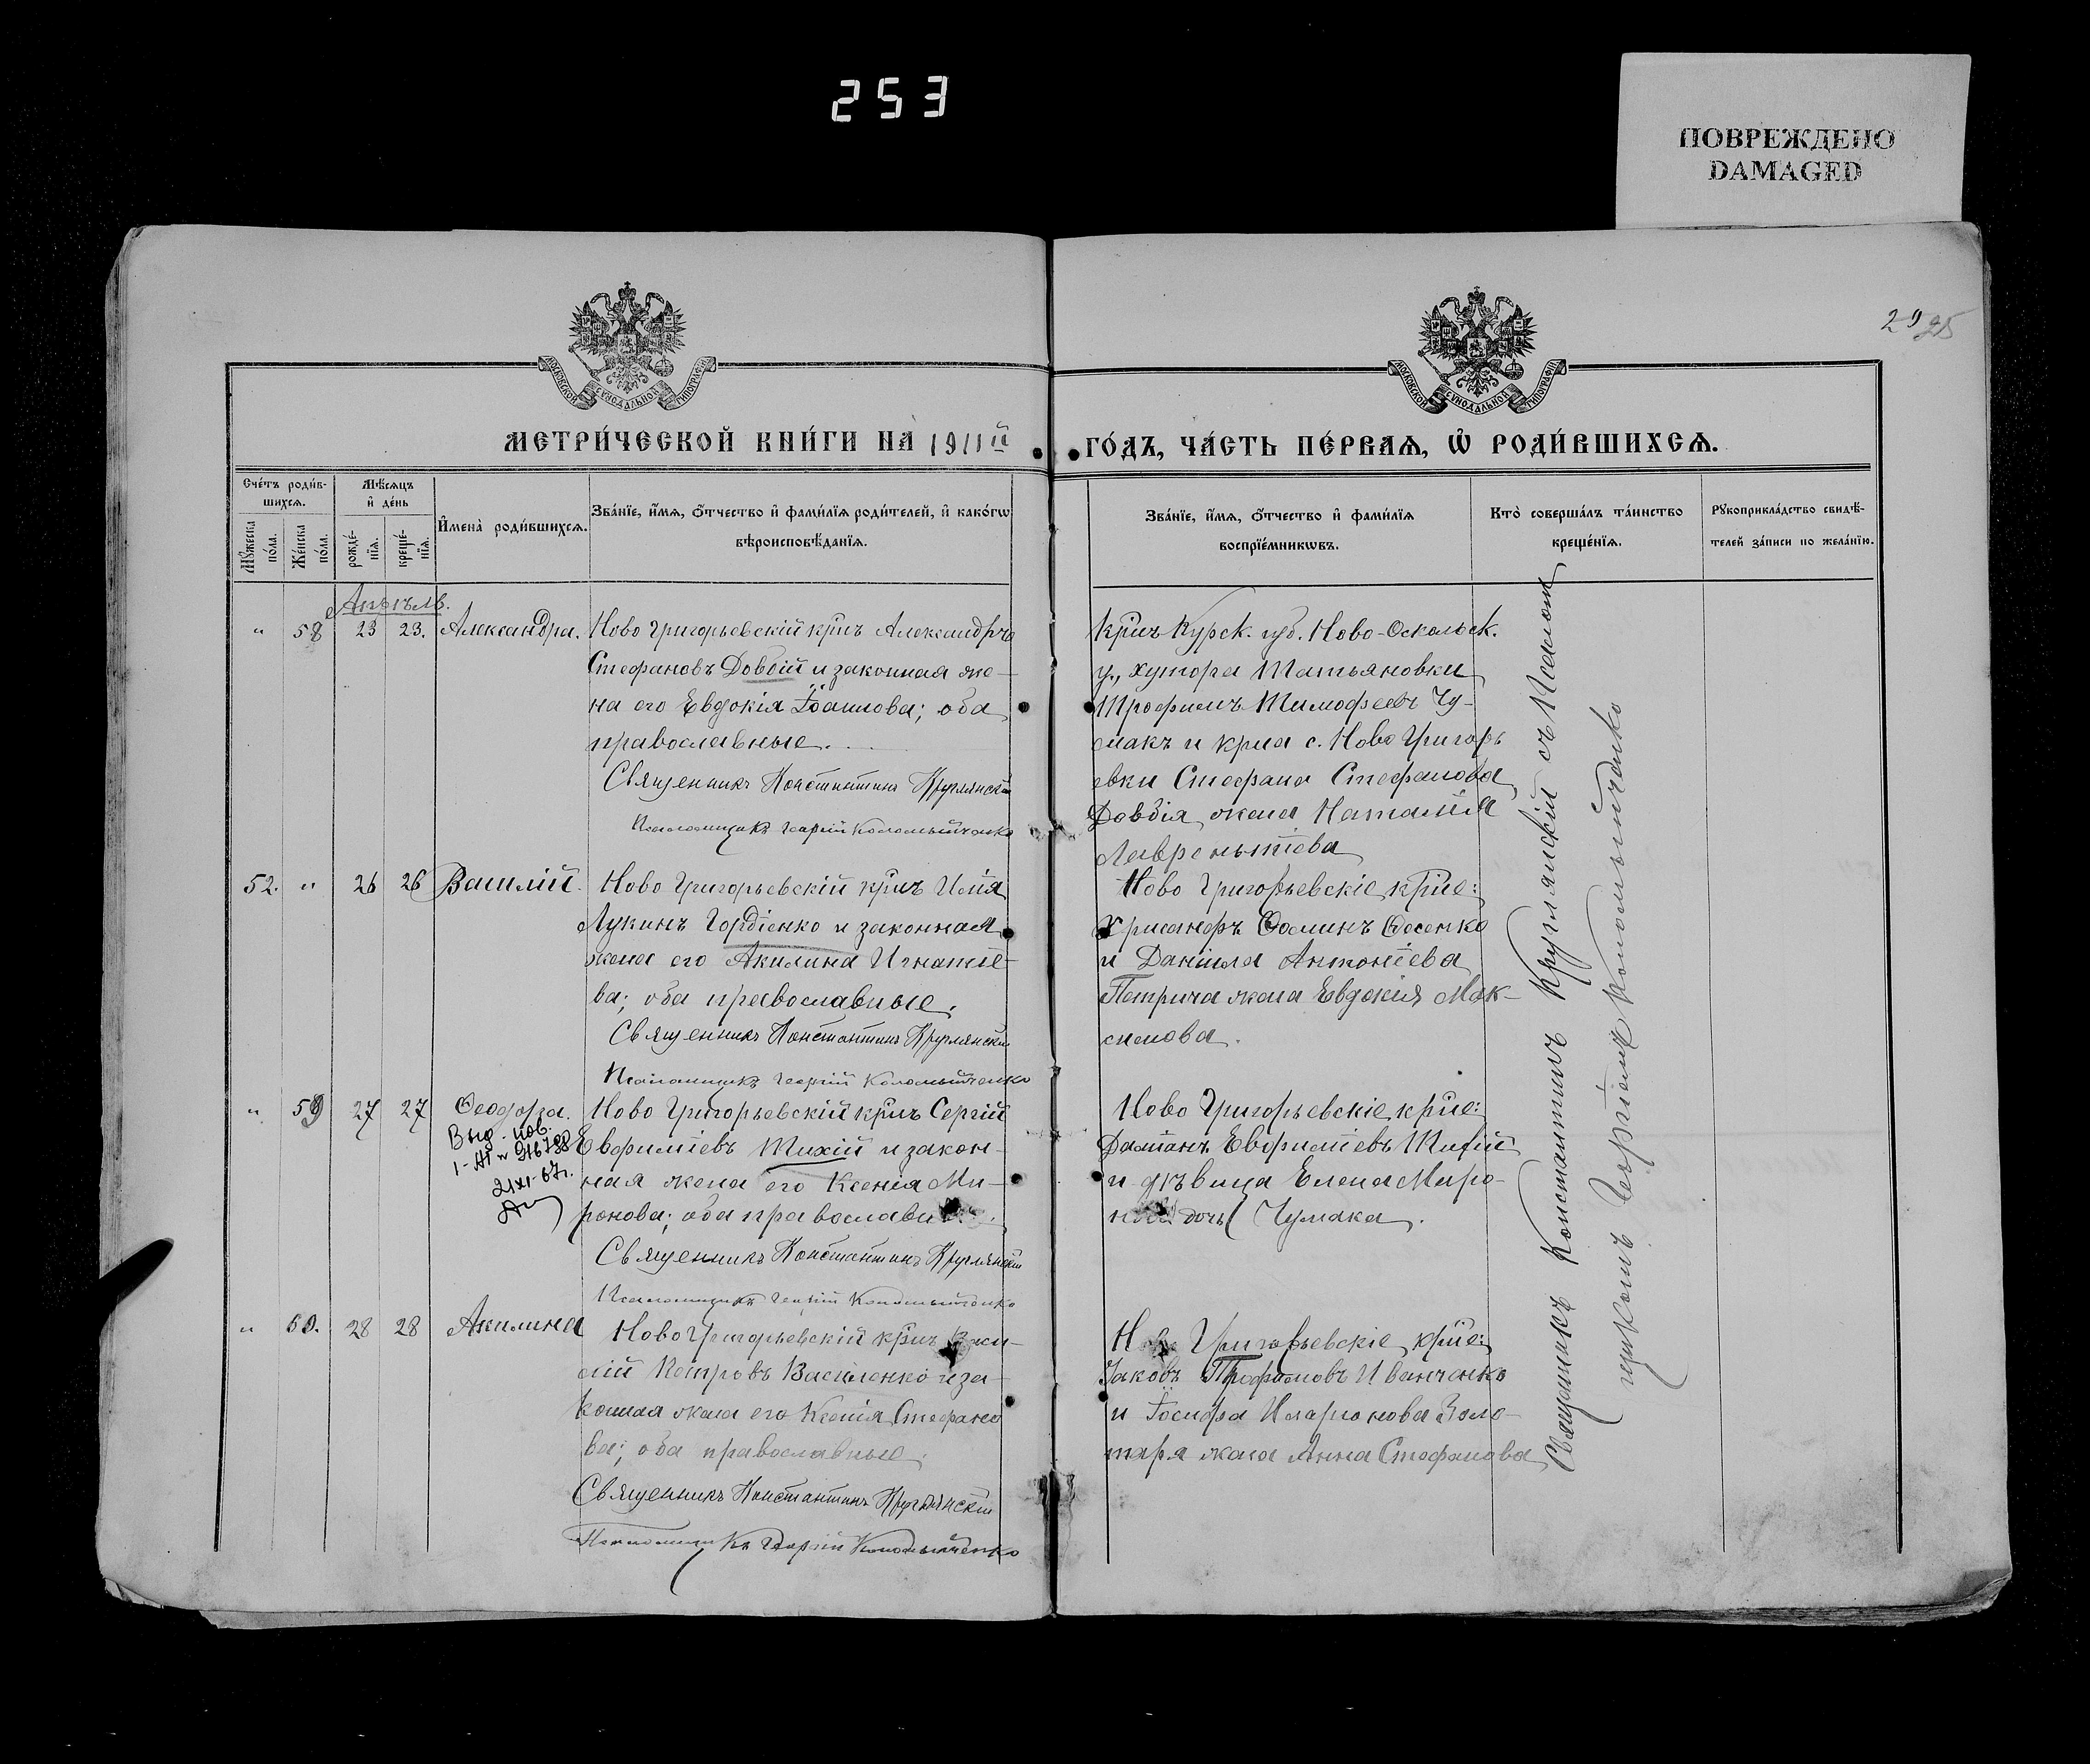 253
ПОВРЕЖДЕНО
DAMAGED
29 25
МОСКОВСКОЙ СѴНОДАЛЬНОЙ ТИПОГРАФІИ
МОСКОВСКОЙ СѴНОДАЛЬНОЙ ТИПОГРАФІИ
МЕТРИ́ЧЕСКОЙ КНИ́ГИ НА 1911й
ГО́ДЪ, ЧА́СТЬ ПЕ́РВАѦ, Ѡ҆ РОДИ́ВШИХСѦ.
Сче́тъ роди́в-
шихсѧ.
Мꙋ́жеска
по́ла.
Же́нска
по́ла.
Мѣ́сѧцъ
и҆ де́нь
рожде́-
нїѧ.
креще́-
нїѧ.
И҆мена̀ роди́вшихсѧ.
Зва́нїе, и҆́мѧ, ѻ҆́тчество и҆ фами́лїѧ роди́телей, и҆ како́гѡ
вѣроисповѣ́данїѧ.
Зва́нїе, и҆́мѧ, ѻ҆́тчество и҆ фами́лїѧ
воспрїе́мникѡвъ.
Кто̀ соверша́лъ та́инство
креще́нїѧ.
Рꙋкоприкла́дство свидѣ́-
телей за́писи по жела́нїю.
Апрѣль.
" 58 23 23. Александра.
Ново Григорьевскій крнъ Александръ
Стефановъ Довбій и законная же-
на его Евдокія Іоаннова; оба
православные.
Священникъ Константинъ Круглянскій
Псаломщикъ Георгій Коломыйченко
Крнъ Курск. губ. Ново-Оскольск.
у., хутора Татьяновки
Трофимъ Тимофеевъ Чу-
макъ и крна с. Ново Григорь
евки Стефана Стефанова
Довбія жена Наталія
Лаврентіева
52. " 26 26 Василій.
Ново Григорьевскій крнъ Илія
Лукинъ Гордіенко и законная
жена его Акилина Игнатіе-
ва; оба православные.
Священникъ Константинъ Круглянскій
Псаломщикъ Георгій Коломыйченко
Ново Григорьевскіе крне:
Хрисанфъ Ѳоминъ Ѳесенко
и Даніила Антоніева
Петрича жена Евдокія Мак-
симова.
" 59 27 27 Ѳеодора.
Выд. пов.
21 XI-67г.
Ново Григорьевскій крнъ Сергій
Евфиміевъ Тихій и закон-
ная жена его Ксенія Ми-
ронова; оба православн
Священникъ Константинъ Круглянскій
Псаломщикъ Георгій Коломыйченко
Ново Григорьевскіе крне:
Даміанъ Евфиміевъ Тихій
и дѣвица Елена Миро-
дочь Чумака.
" 60. 28 28 Акилина
Ново Григорьевскій крнъ Васи-
лій Петровъ Василенко и за-
конная жена его Ксенія Стефано
ва; оба православные.
Священникъ Константинъ Круглянскій
Псаломщикъ Георгій Коломыйченко
Ново Григорьевскіе крне:
Іаковъ Трофимовъ Иванченко
и Іосифа Иларіонова Золо-
таря жена Анна Стефанова
Священникъ Константинъ Круглянскій съ Псалом
щикомъ Георгіемъ Коломыйченко